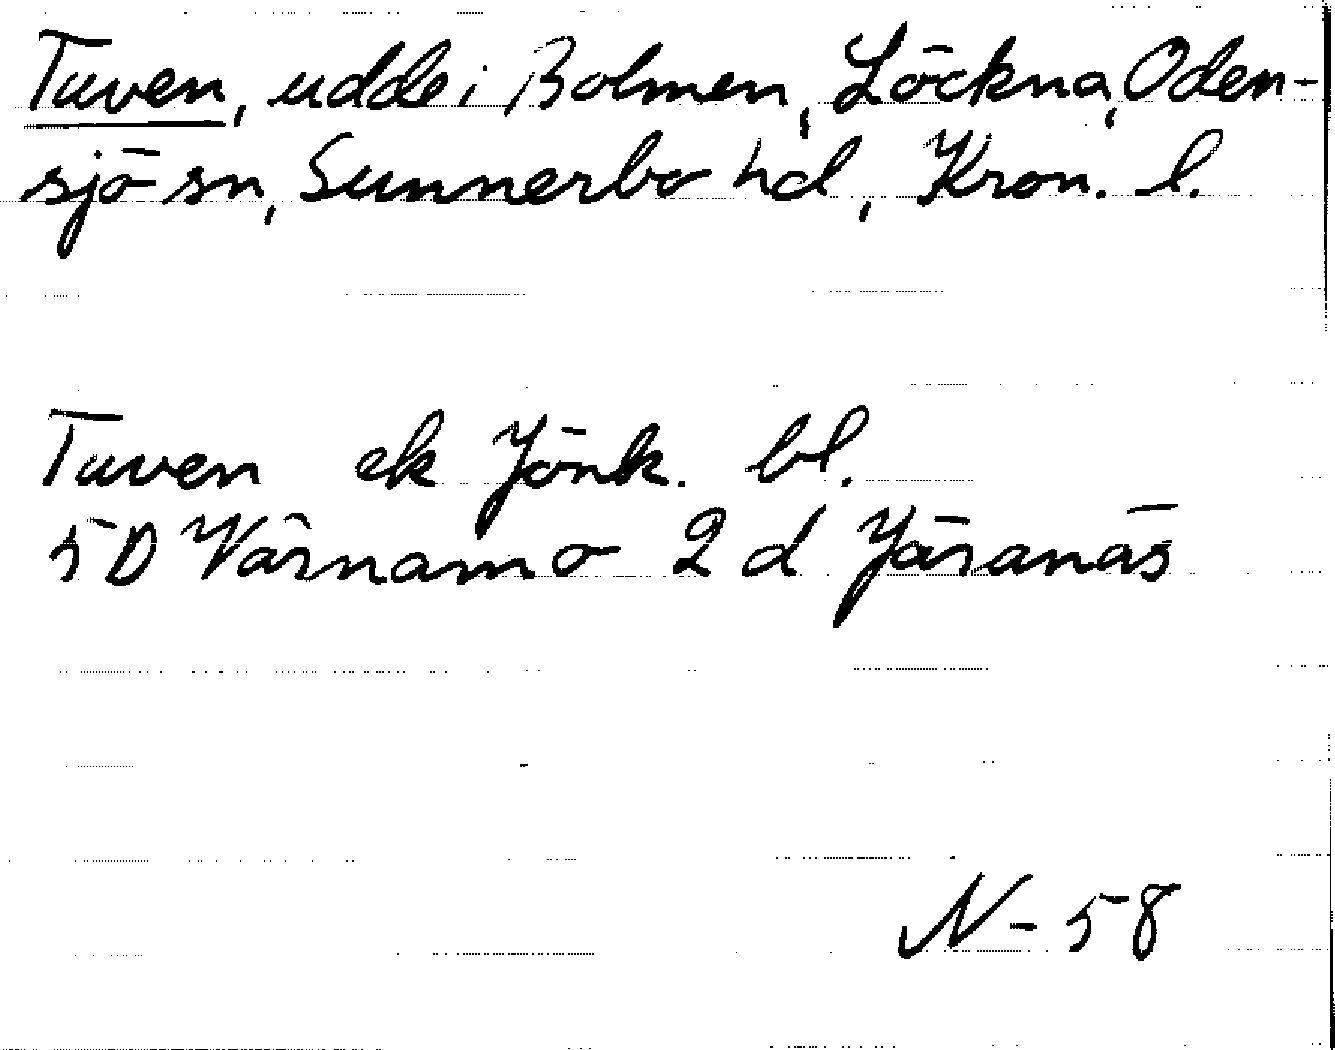 Tuven, udde i Bolmen, Löckna, Oden-
sjö sn, Sunnerbo hd, Kron. l.
Tuven ek Jönk. bl.
5D Värnamo 2 d Järanäs
N-58